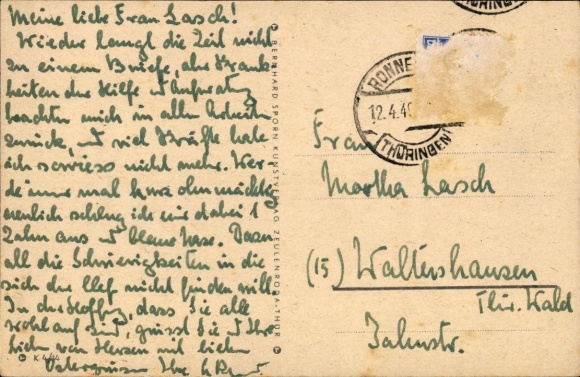 Meine liebe Frau Lasch!
Wieder langt die Zeit nicht
zu einem Briefe, aber Krank-
heiten der Hilfe u. Aufwartg
brachten mich in allen Arbeiten
zurück, u viel Kräfte habe
ich sowieso nicht mehr. Wer-
de immer mal kurz ohnmächtig
neulich schlug ich mir dabei 1
Zahn aus u blaue Nase. Dazu
all die Schwierigkeiten in die
sich der Chef nicht finden will.
In der Hoffng, dass Sie alle
wohlauf sind, grüsst Sie u Ihre
Lieben von Herzen mit lieben
Ostergrüssen Ihre
BERNHARD SPORN KUNSTVERLAG ZEULENRODA-THÜR
K 4/44
RONNE
12.4.4
THÜRINGEN
THÜRINGEN
Frau
Martha Lasch
(15) Waltershausen
Thür. Wald
Jahnstr.